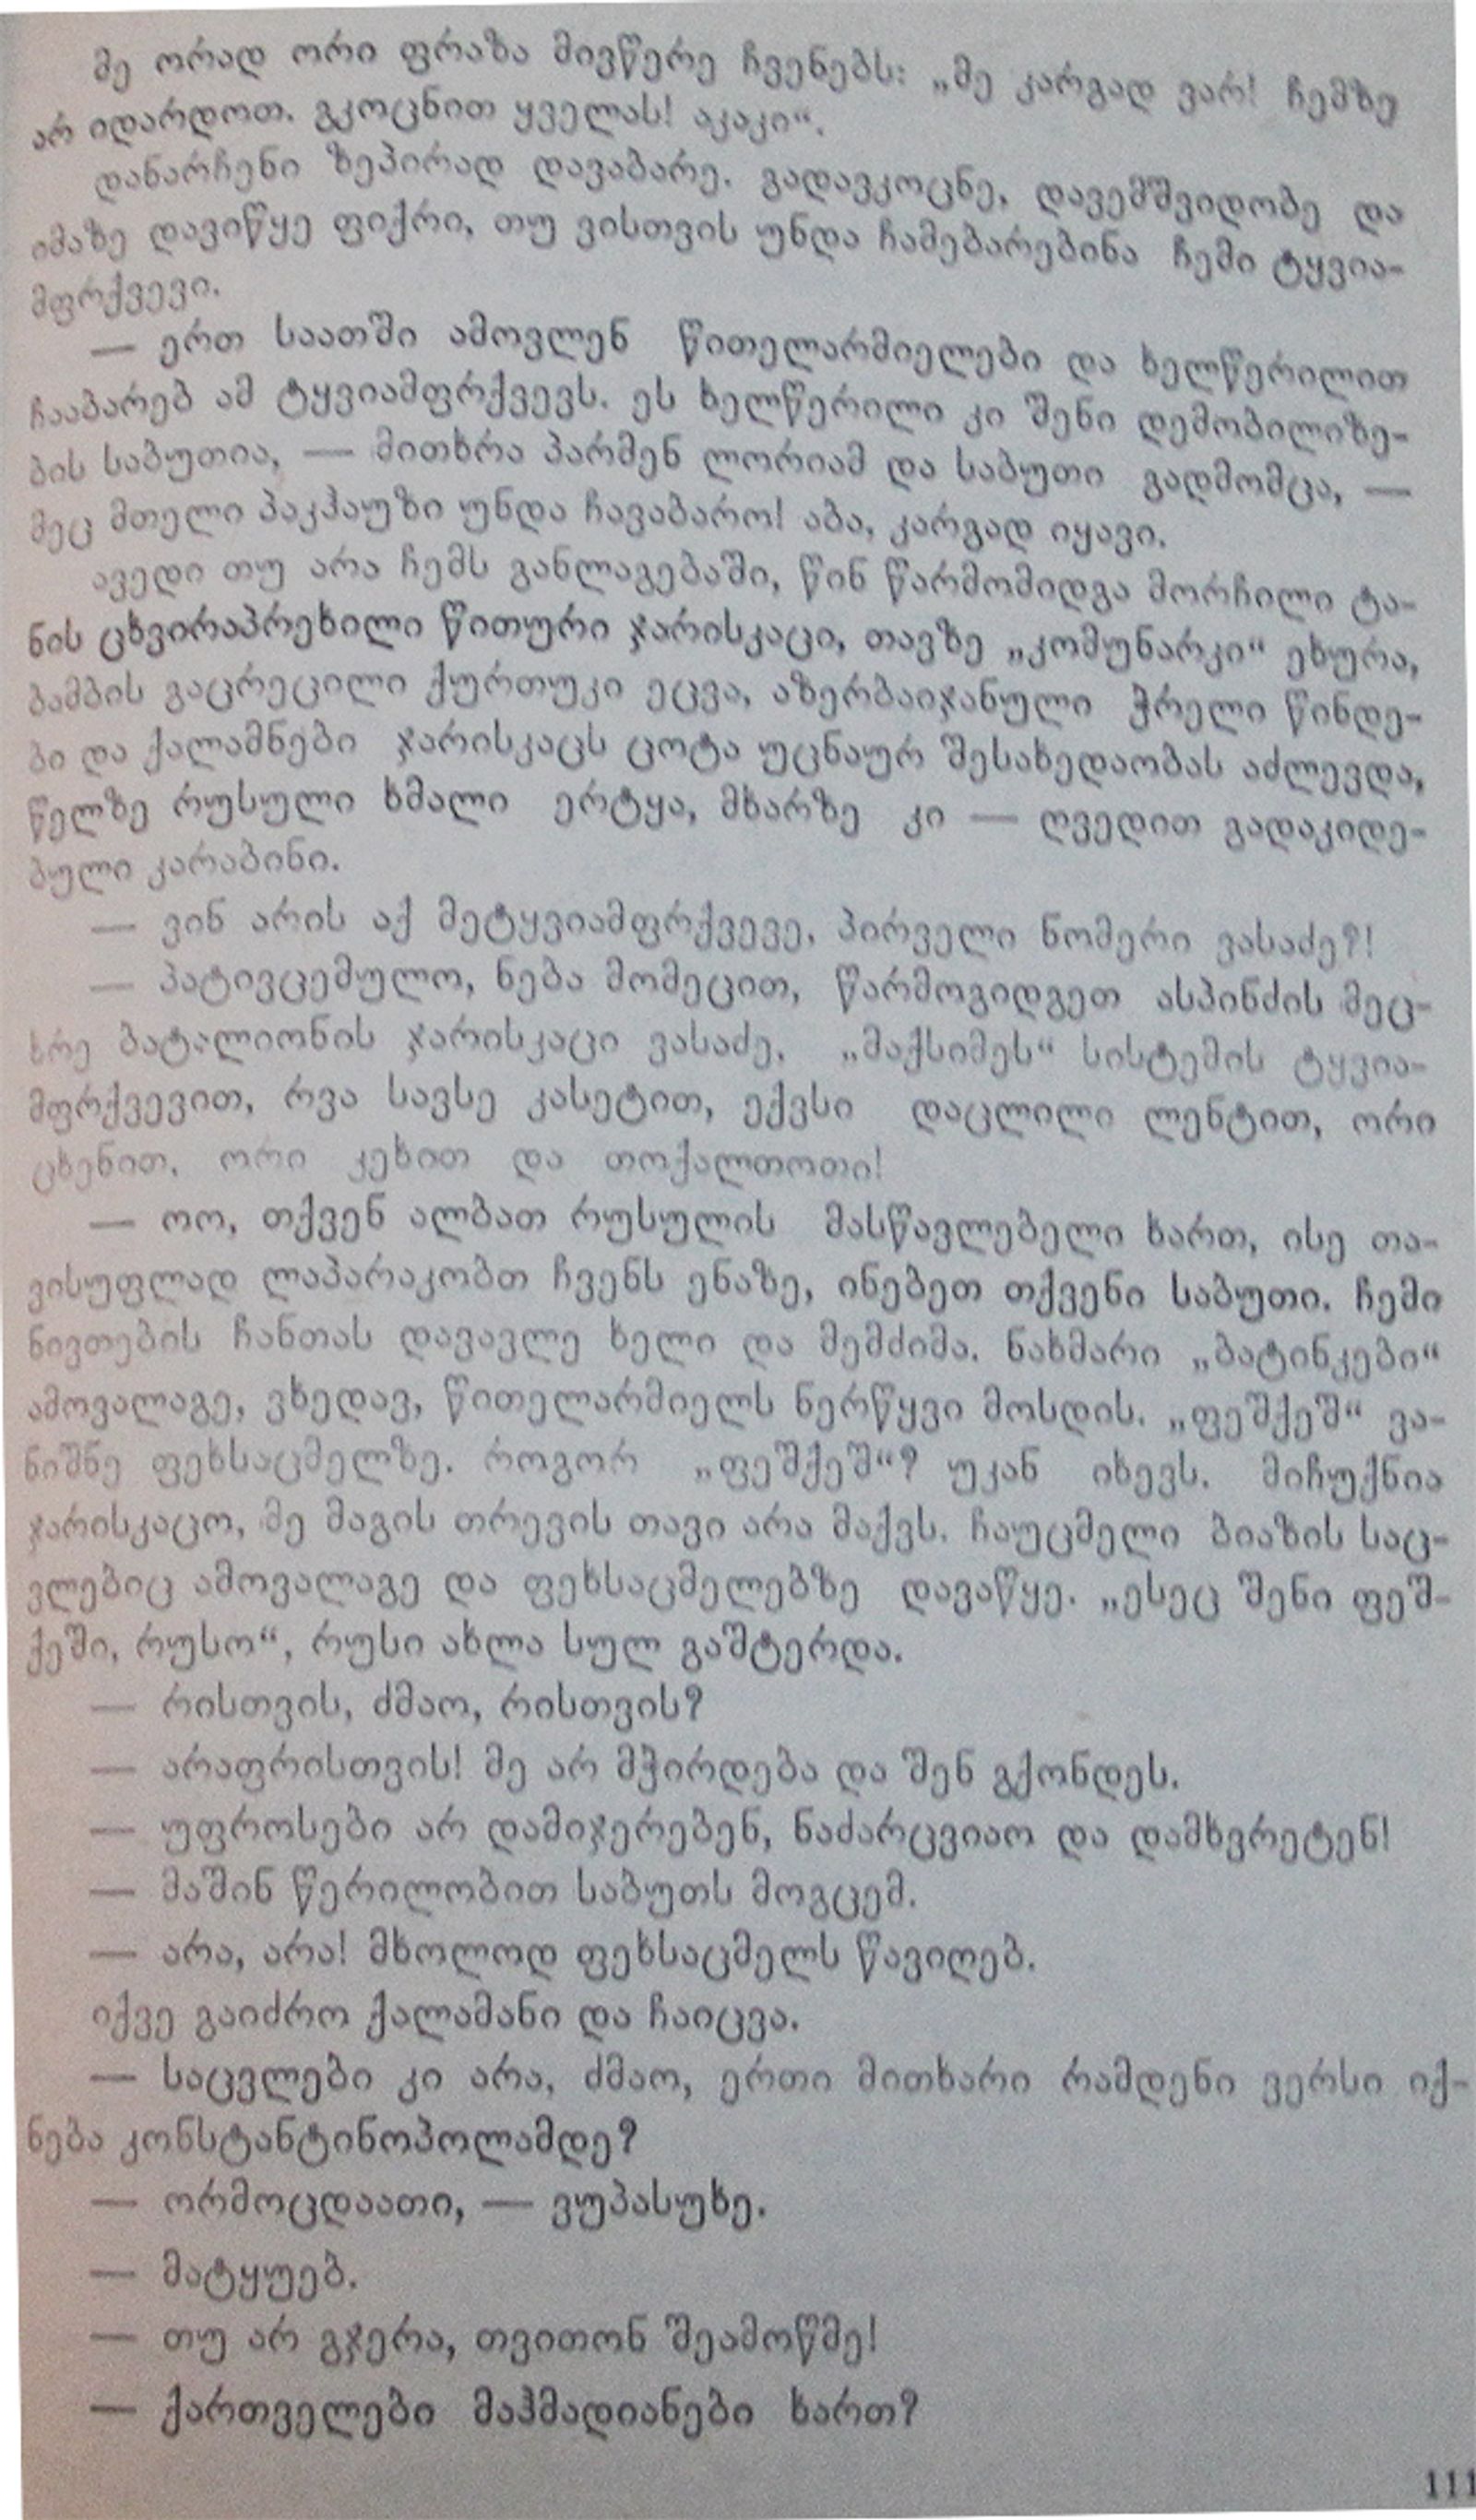 მე ორად ორი ფრაზა მივწერე ჩვენებს: „მე კარგად ვარ! ჩემზე
არ იდარდოთ. გკოცნით ყველას! აკაკი“.
დანარჩენი ზეპირად დავაბარე. გადავკოცნე, დავემშვიდობე და
იმაზე დავიწყე ფიქრი, თუ ვისთვის უნდა ჩამებარებინა ჩემი ტყვია-
მფრქვევი.
— ერთ საათში ამოვლენ წითელარმიელები და ხელწერილით
ჩააბარებ ამ ტყვიამფრქვევს. ეს ხელწერილი კი შენი დემობილიზე-
ბის საბუთია, — მითხრა პარმენ ლორიამ და საბუთი გადმომცა, —
მეც მთელი პაკჰაუზი უნდა ჩავაბარო! აბა, კარგად იყავი.
ავედი თუ არა ჩემს განლაგებაში, წინ წარმომიდგა მორჩილი ტა-
ნის ცხვირაპრეხილი წითური ჯარისკაცი, თავზე „კომუნარკი“ ეხურა,
ბამბის გაცრეცილი ქურთუკი ეცვა, აზერბაიჯანული ჭრელი წინდე-
ბი და ქალამნები ჯარისკაცს ცოტა უცნაურ შესახედაობას აძლევდა,
წელზე რუსული ხმალი ერტყა, მხარზე კი — ღვედით გადაკიდე-
ბული კარაბინი.
— ვინ არის აქ მეტყვიამფრქვევე, პირველი ნომერი ვასაძე?!
— პატივცემულო, ნება მომეცით, წარმოგიდგეთ ასპინძის მეც-
ხრე ბატალიონის ჯარისკაცი ვასაძე, „მაქსიმეს“ სისტემის ტყვია-
მფრქვევით, რვა სავსე კასეტით, ექვსი დაცლილი ლენტით, ორი
ცხენით, ორი კეხით და თოქალთოთი!
— ოო, თქვენ ალბათ რუსულის მასწავლებელი ხართ, ისე თა-
ვისუფლად ლაპარაკობთ ჩვენს ენაზე, ინებეთ თქვენი საბუთი. ჩემი
ნივთების ჩანთას დავავლე ხელი და მემძიმა. ნახმარი „ბატინკები“
ამოვალაგე, ვხედავ, წითელარმიელს ნერწყვი მოსდის. „ფეშქეშ“ ვა-
ნიშნე ფეხსაცმელზე. როგორ „ფეშქეშ“? უკან იხევს. მიჩუქნია
ჯარისკაცო, მე მაგის თრევის თავი არა მაქვს. ჩაუცმელი ბიაზის საც-
ვლებიც ამოვალაგე და ფეხსაცმელებზე დავაწყე. „ესეც შენი ფეშ-
ქეში, რუსო“, რუსი ახლა სულ გაშტერდა.
— რისთვის, ძმაო, რისთვის?
— არაფრისთვის! მე არ მჭირდება და შენ გქონდეს.
— უფროსები არ დამიჯერებენ, ნაძარცვიაო და დამხვრეტენ!
— მაშინ წერილობით საბუთს მოგცემ.
— არა, არა! მხოლოდ ფეხსაცმელს წავიღებ.
იქვე გაიძრო ქალამანი და ჩაიცვა.
— საცვლები კი არა, ძმაო, ერთი მითხარი რამდენი ვერსი იქ-
ნება კონსტანტინოპოლამდე?
— ორმოცდაათი, — ვუპასუხე.
— მატყუებ.
— თუ არ გჯერა, თვითონ შეამოწმე!
— ქართველები მაჰმადიანები ხართ?
111